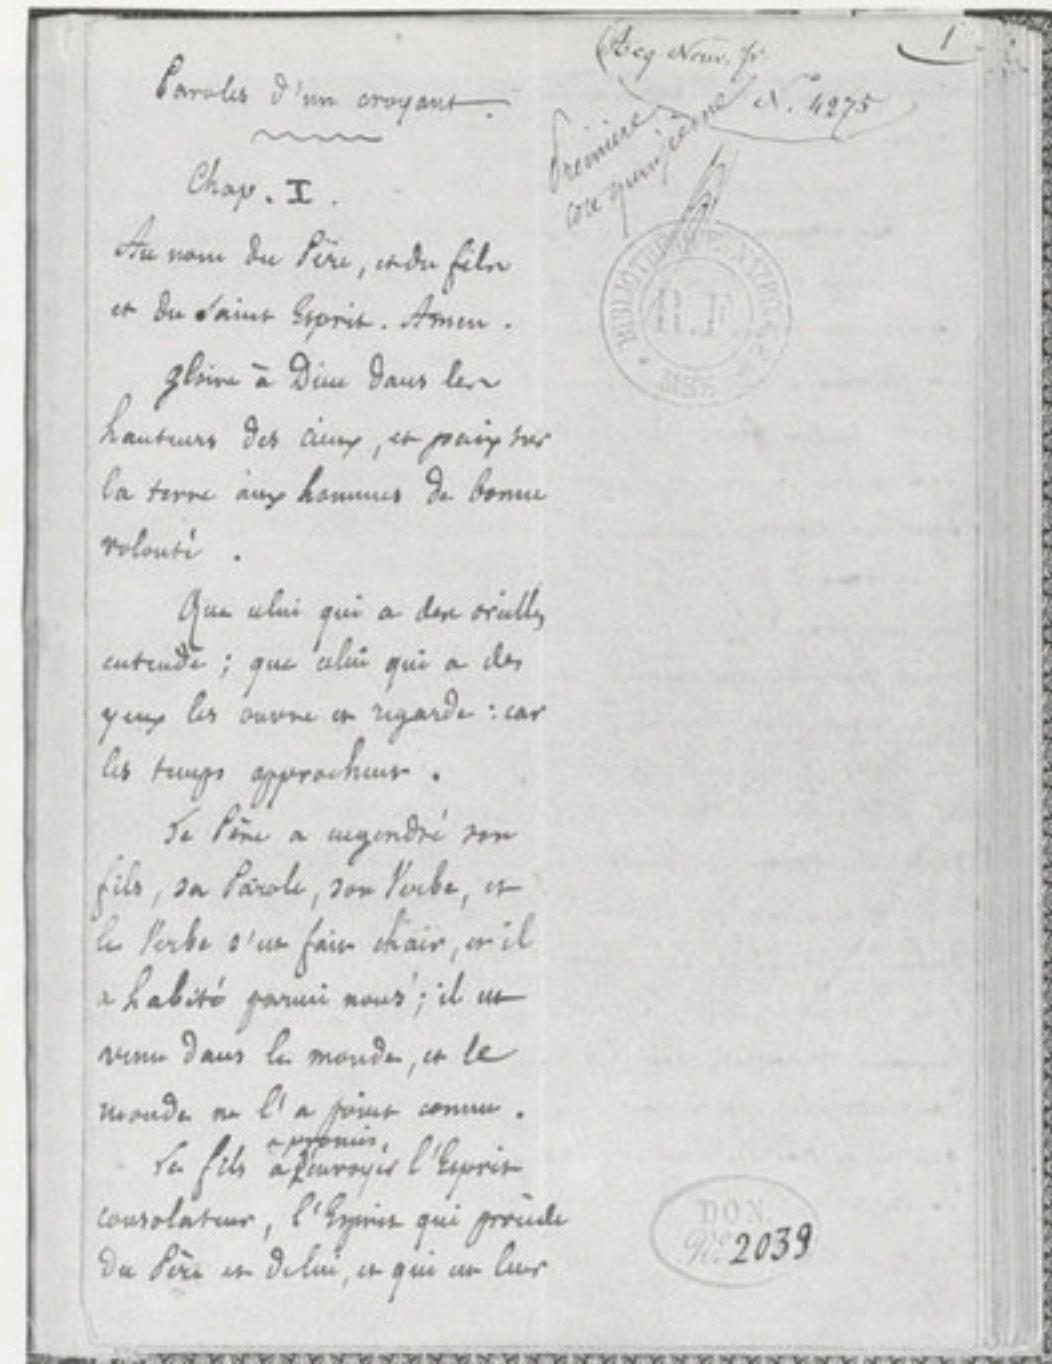 1
Acq. Nouv. fr.
N.° 4275
Première
Paroles d'un croyant.
Chap. I.
Au nom du Père, et du fils
et du Saint Esprit. Amen.
gloire à Dieu dans les
hauteurs des cieux, et paix sur
la terre aux hommes de bonne
volonté.
Que celui qui a des oreilles
entende ; que celui qui a des
yeux les ouvre et regarde : car
les temps approchent.
Le Père a engendré son
fils, sa Parole, son Verbe, et
le Verbe s'est fait chair, et il
a habité parmi nous ; il est
venu dans le monde, et le
monde ne l'a point connu.
a promis,
Le fils à d'envoyer l'Esprit
consolateur, l'Esprit qui procède
du Père et de lui, et qui est leur
BIBLIOTHÈQUE NATIONALE
R.F.
MSS
DON.
N.° 2039